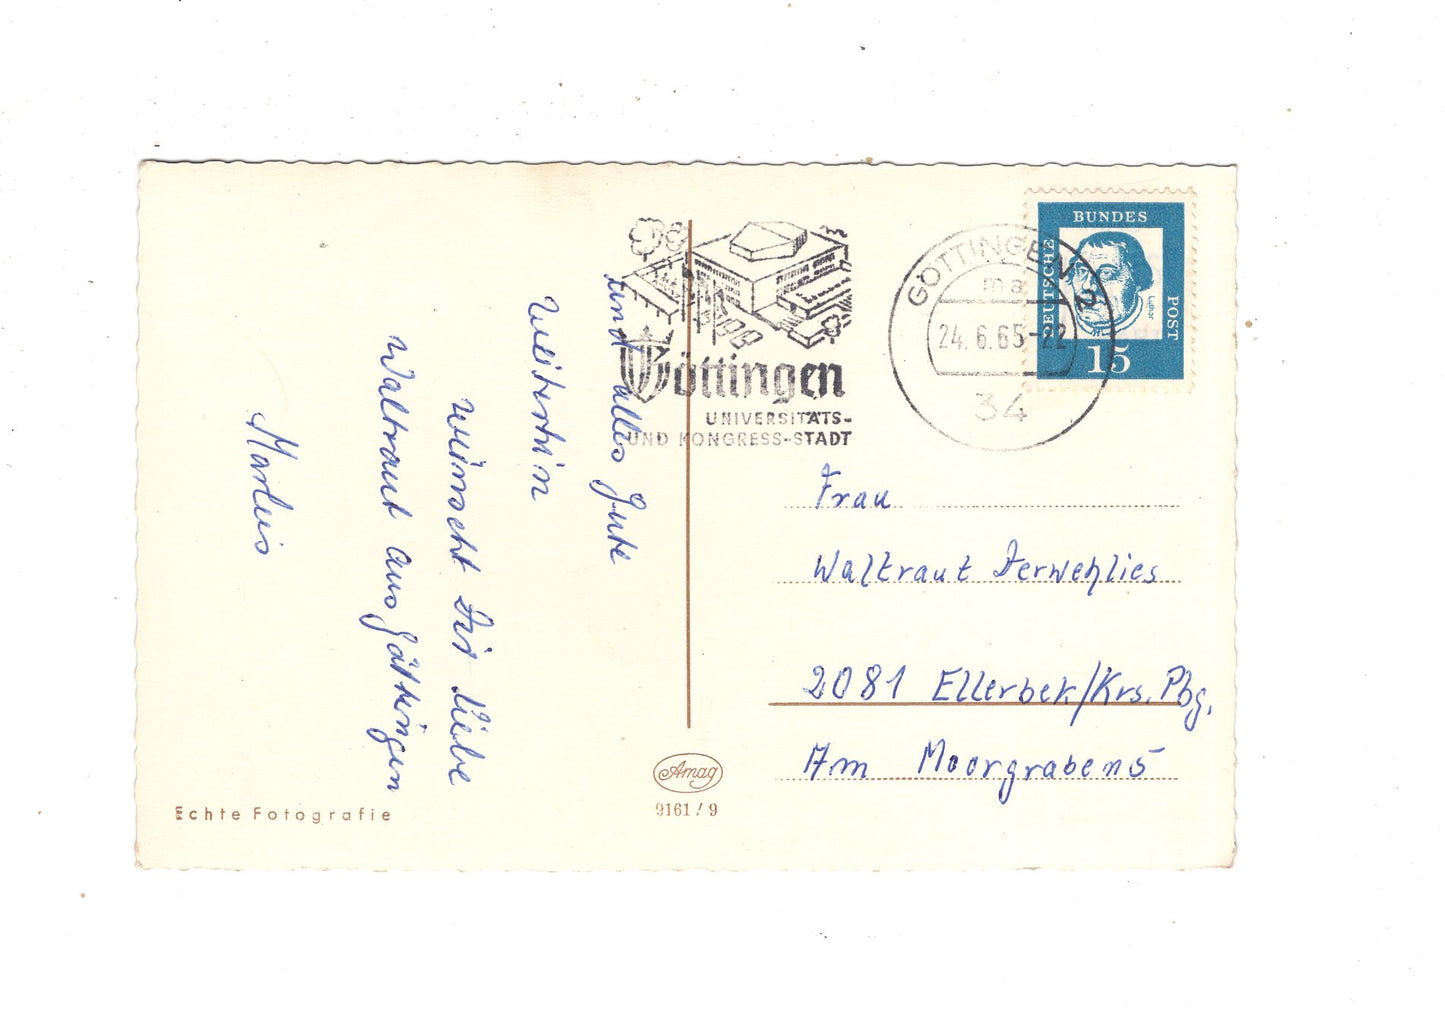 und alles Gute
weiterhin
wünscht Dir liebe
Waltraut aus Göttingen
Marlis
Echte Fotografie
Amag
9161/9
Göttingen
UNIVERSITÄTS-
UND KONGRESS-STADT
GÖTTINGEN 2
ma
24.6.65-22
34
DEUTSCHE
BUNDES
POST
Luther
15
Frau
Waltraut Derwehlies
2081 Ellerbek/Krs. Pbg.
Am Moorgraben 5